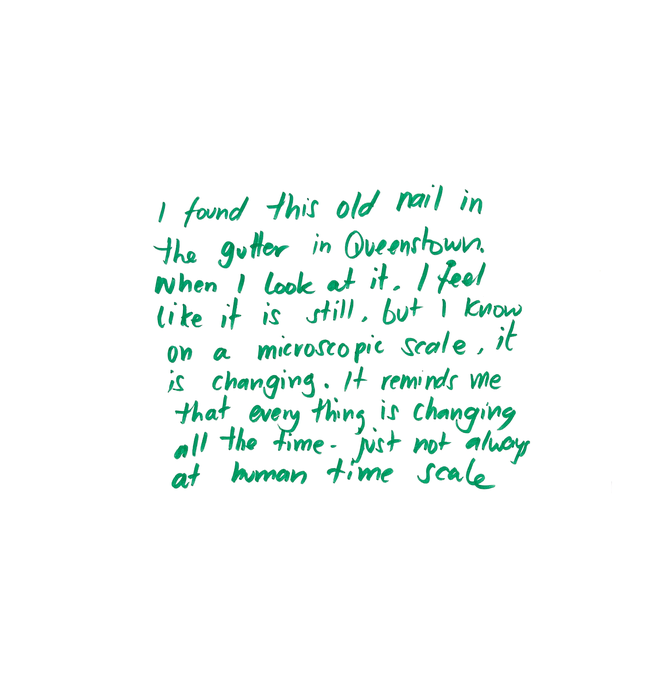 I found this old nail in
the gutter in Queenstown.
When I look at it, I feel
like it is still, but I know
on a microscopic scale, it
is changing. It reminds me
that every thing is changing
all the time - just not always
at human time scale